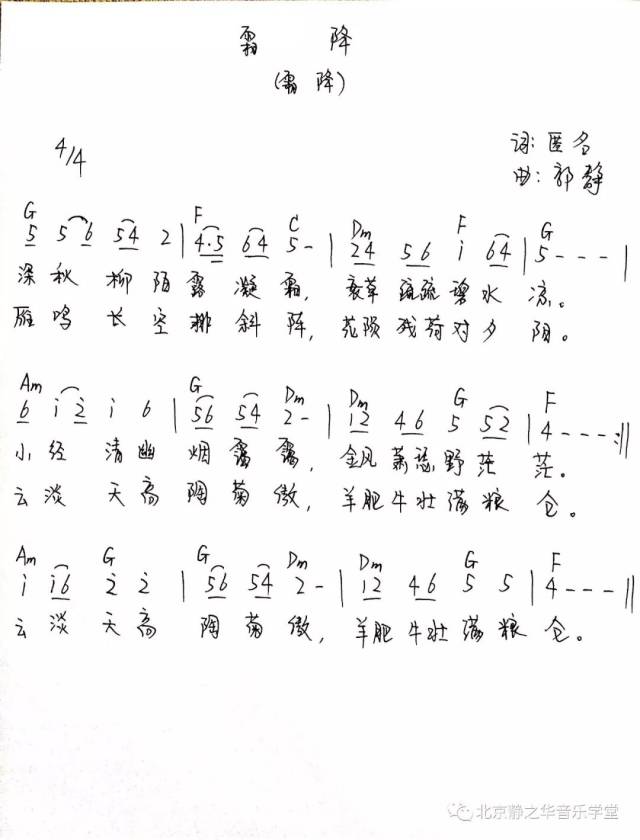 霜 降
(霜 降)
4/4
词: 匿名
曲: 郭静
G F C Dm F G
5 5 6 5 4 2 | 4·5 6 4 5 - | 2 4 5 6 i 6 4 | 5 - - - |
深 秋 柳 陌 露 凝 霜, 衰草 疏疏 碧 水 凉。
雁 鸣 长 空 排 斜 阵, 花陨 残荷 对 夕 阴。
Am G Dm Dm G F
6 i 2 i 6 | 5 6 5 4 2 - | 1 2 4 6 5 5 2 | 4 - - - :||
小 径 清 幽 烟 霭 霭, 金风 萧瑟 野 茫 茫。
云 淡 天 高 陶 菊 傲, 羊肥 牛壮 满 粮 仓。
Am G G Dm Dm G F
i i 6 2 2 | 5 6 5 4 2 - | 1 2 4 6 5 5 | 4 - - - ||
云 淡 天 高 陶 菊 傲, 羊肥 牛壮 满 粮 仓。
北京静之华音乐学堂